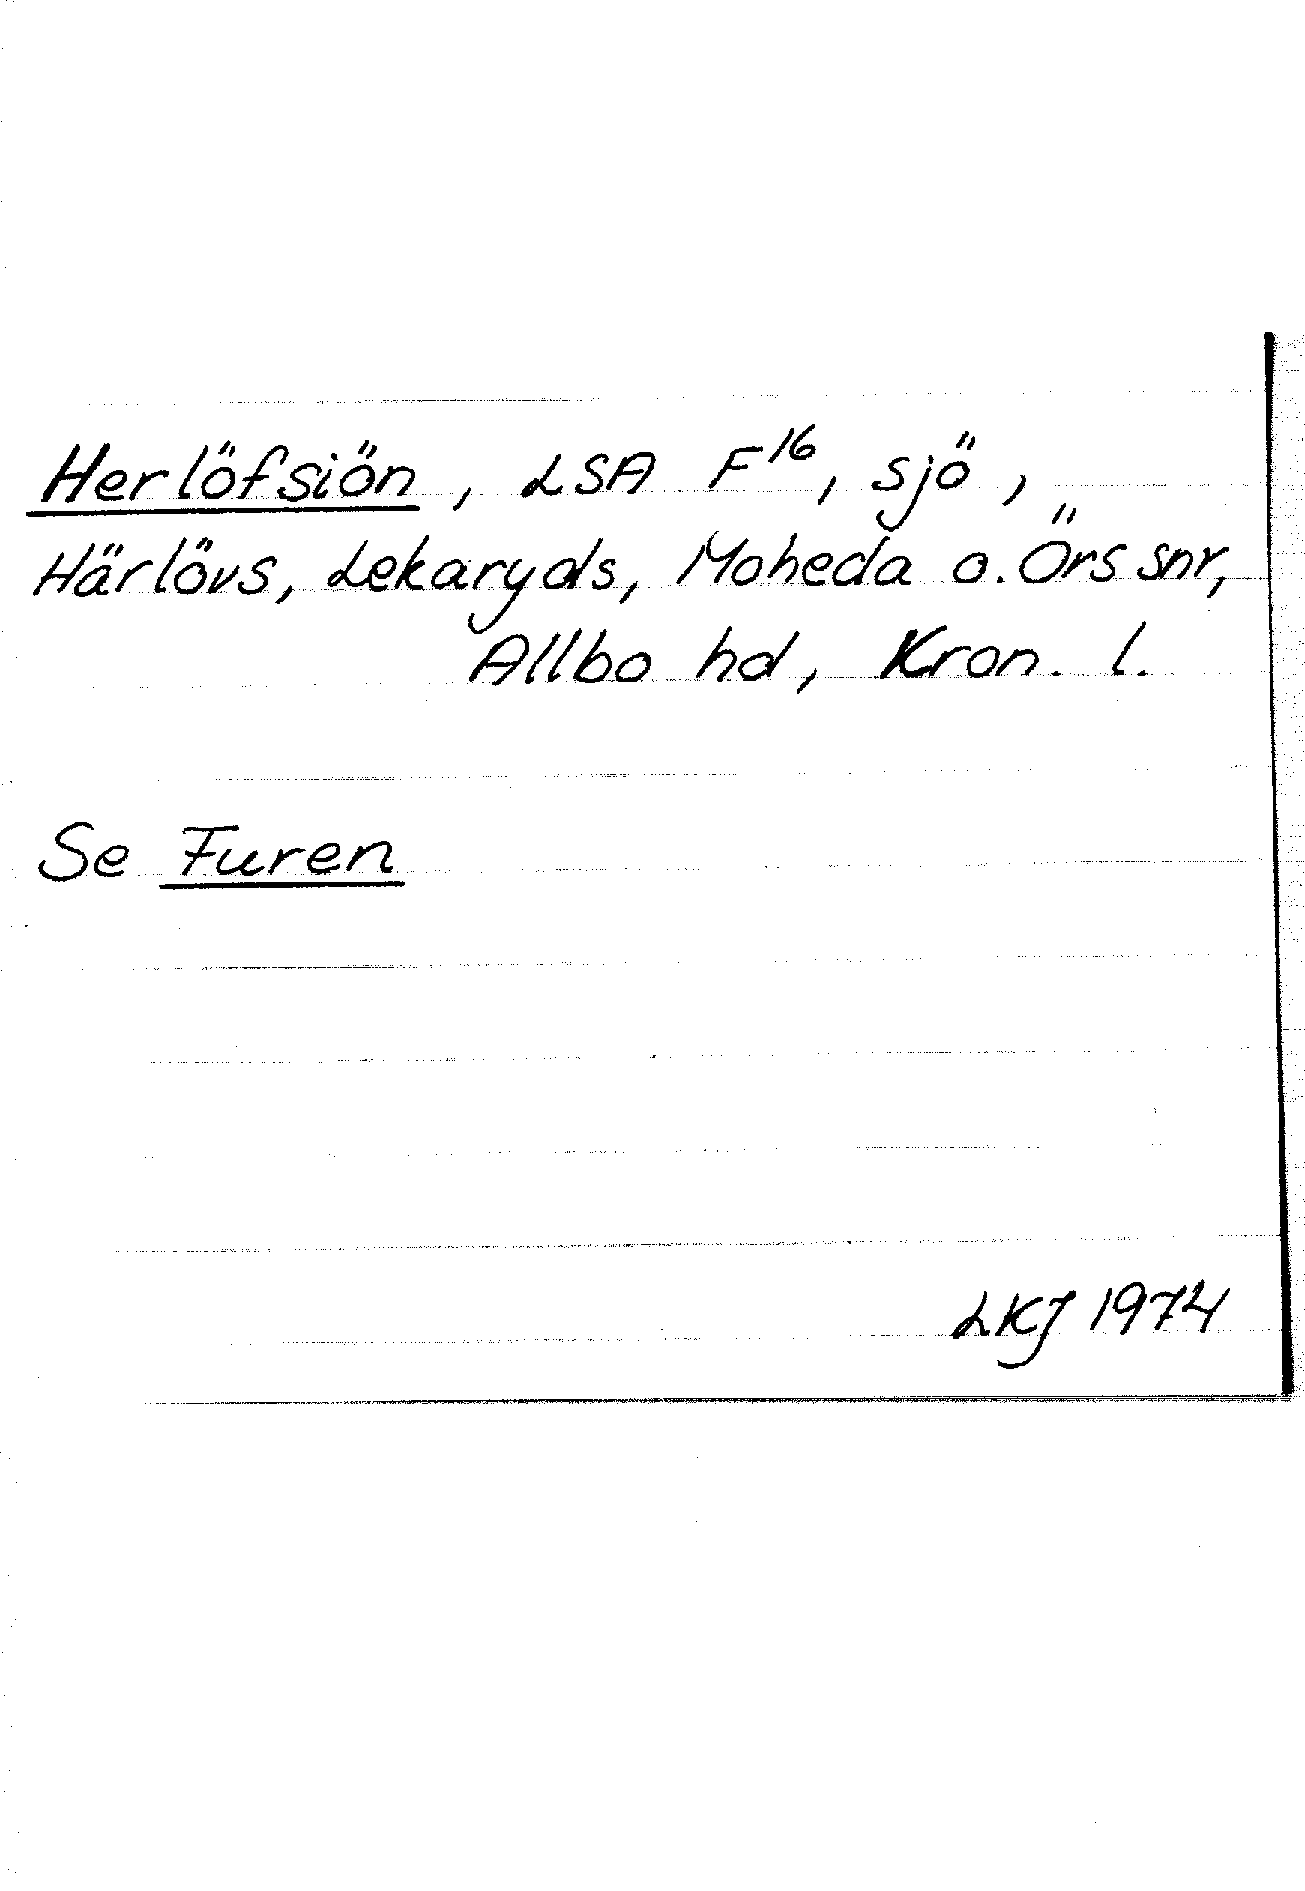 Herlöfsiön, LSA F¹⁶, sjö,
Härlövs, Lekaryds, Moheda o. Örs snr,
Allbo hd, Kron. l.
Se Furen
LKJ 1974